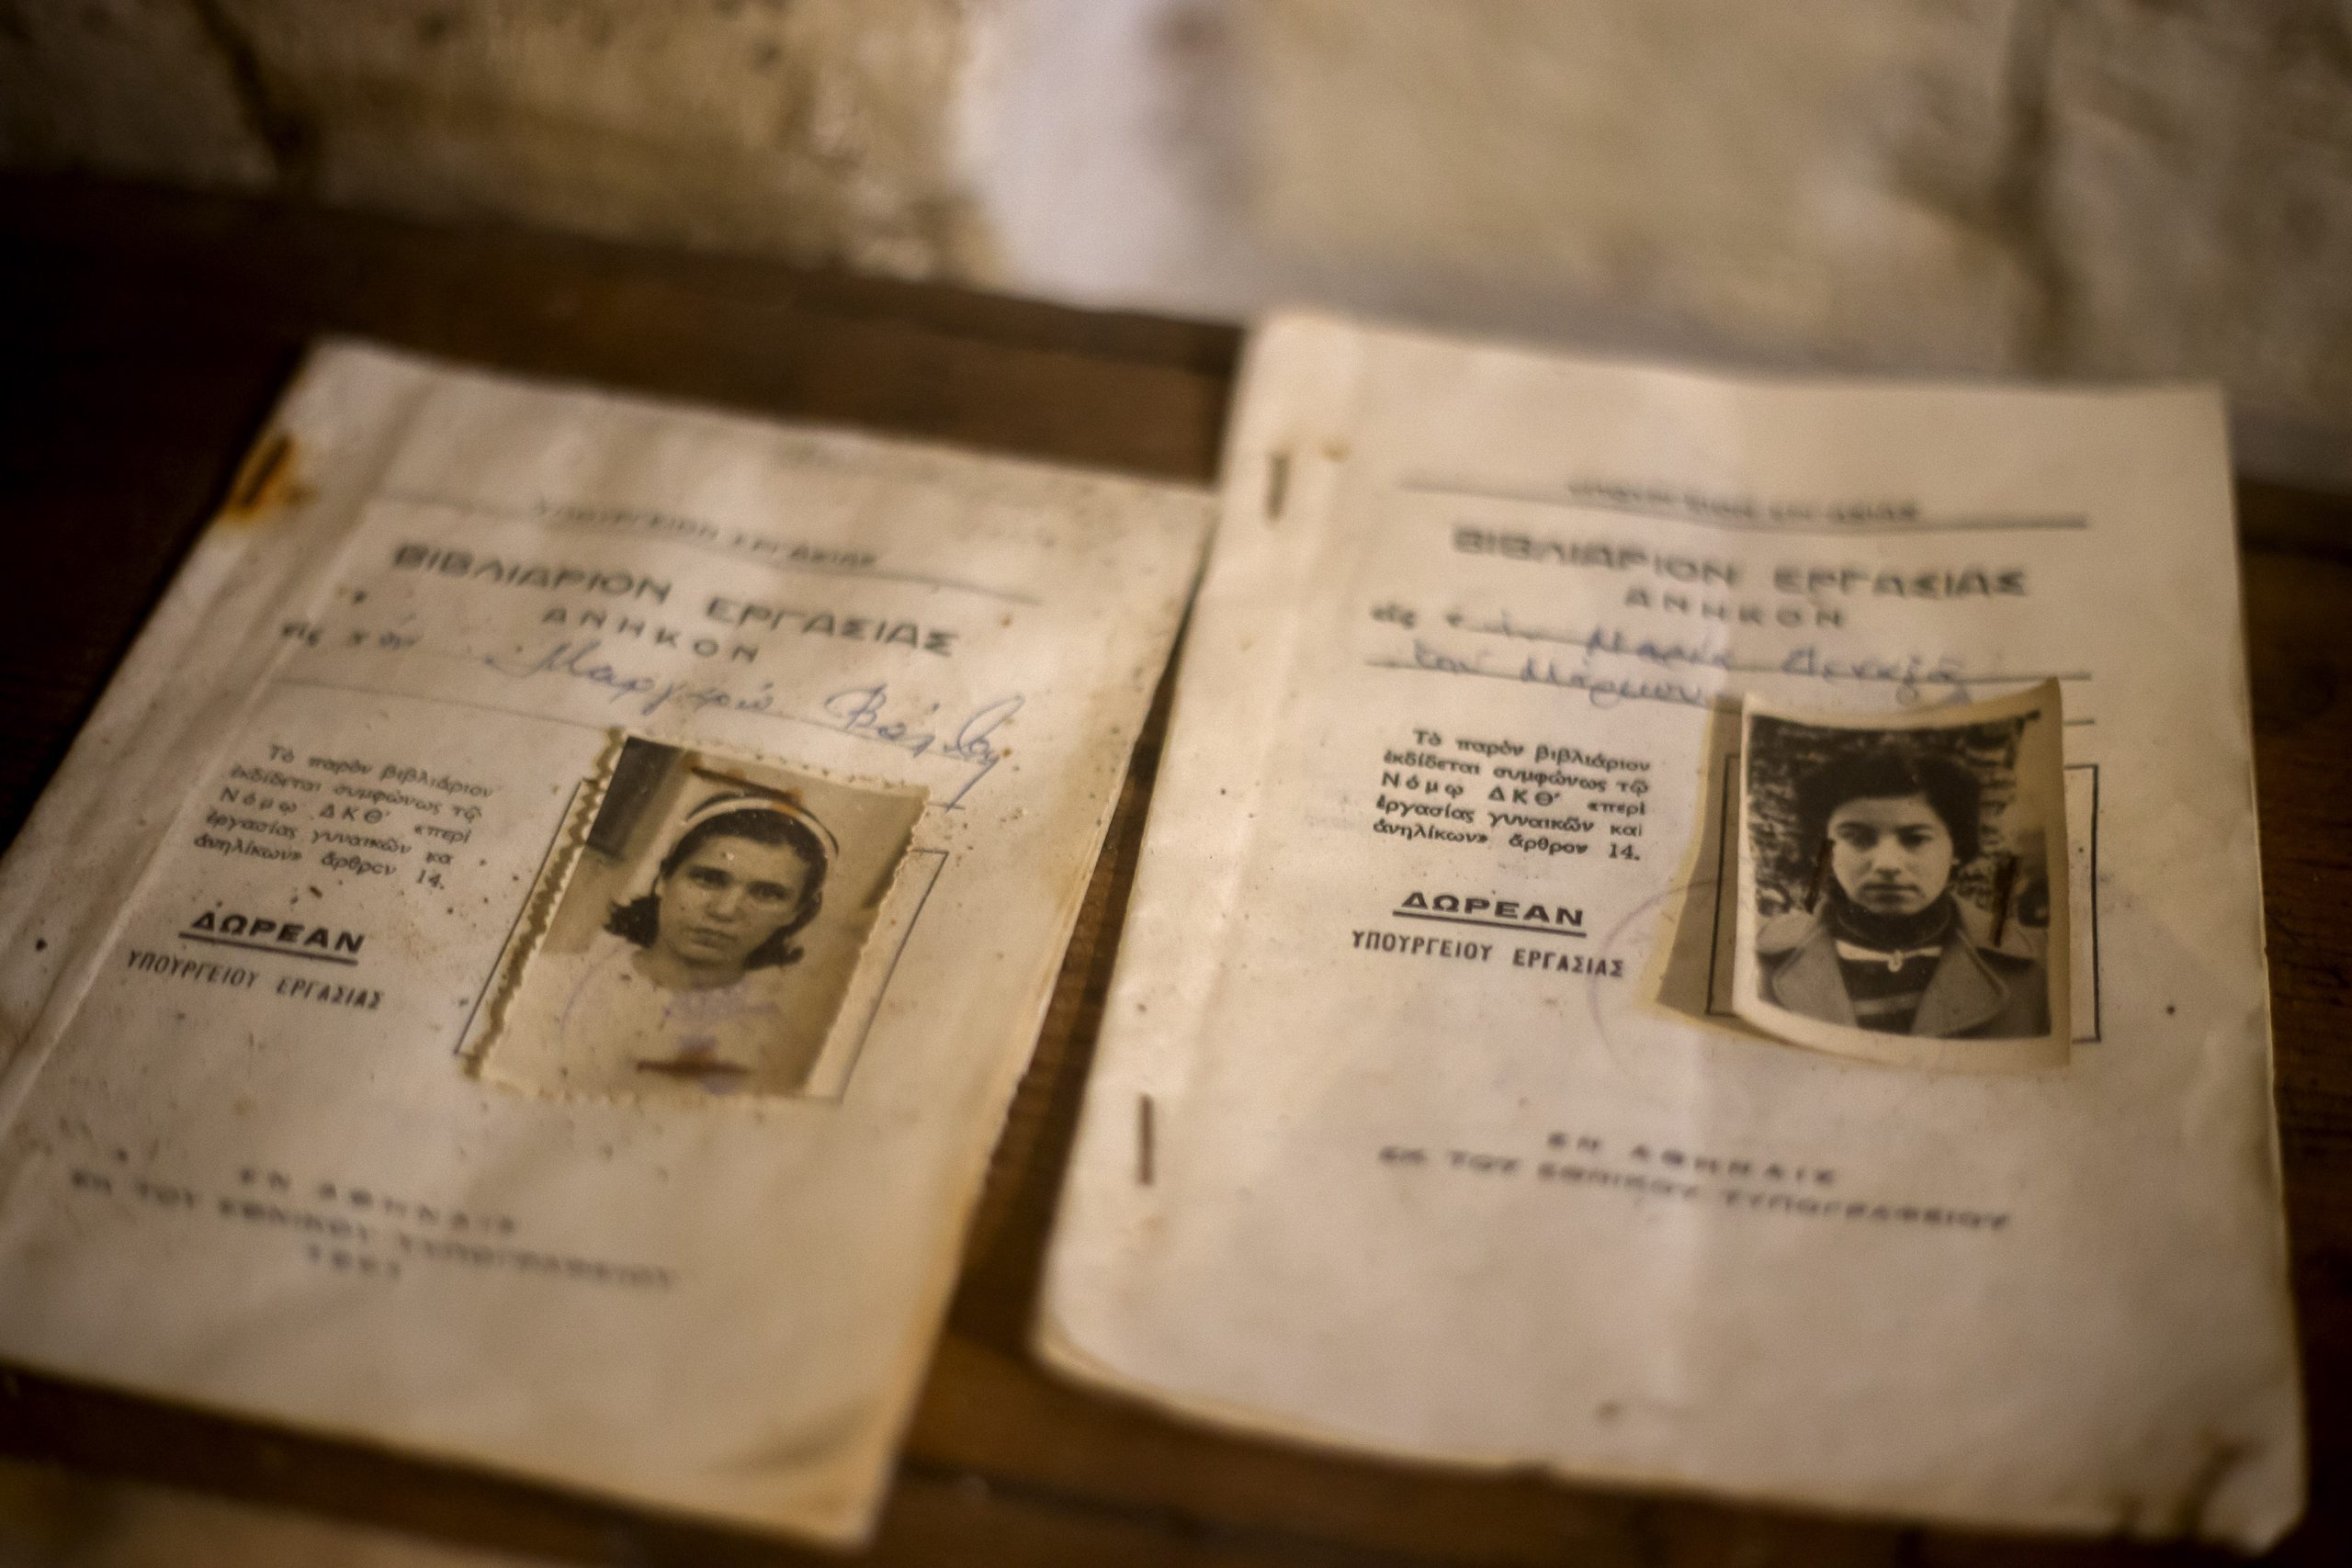 ΥΠΟΥΡΓΕΙΟΝ ΕΡΓΑΣΙΑΣ
ΒΙΒΛΙΑΡΙΟΝ ΕΡΓΑΣΙΑΣ
ΑΝΗΚΟΝ
εἰς τὴν Μαργαρώ
Τὸ παρὸν βιβλιάριον
ἐκδίδεται συμφώνως τῷ
Νόμῳ ΔΚΘ' «περὶ
ἐργασίας γυναικῶν κα
ἀνηλίκων» ἄρθρον 14.
ΔΩΡΕΑΝ
ΥΠΟΥΡΓΕΙΟΥ ΕΡΓΑΣΙΑΣ
ΕΝ ΑΘΗΝΑΙΣ
ΕΚ ΤΟΥ ΕΘΝΙΚΟΥ ΤΥΠΟΓΡΑΦΕΙΟΥ
ΥΠΟΥΡΓΕΙΟΝ ΕΡΓΑΣΙΑΣ
ΒΙΒΛΙΑΡΙΟΝ ΕΡΓΑΣΙΑΣ
ΑΝΗΚΟΝ
εἰς τ Μαρία
τοῦ Μάρκου
Τὸ παρὸν βιβλιάριον
ἐκδίδεται συμφώνως τῷ
Νόμῳ ΔΚΘ' «περὶ
ἐργασίας γυναικῶν καὶ
ἀνηλίκων» ἄρθρον 14.
ΔΩΡΕΑΝ
ΥΠΟΥΡΓΕΙΟΥ ΕΡΓΑΣΙΑΣ
ΕΝ ΑΘΗΝΑΙΣ
ΕΚ ΤΟΥ ΕΘΝΙΚΟΥ ΤΥΠΟΓΡΑΦΕΙΟΥ